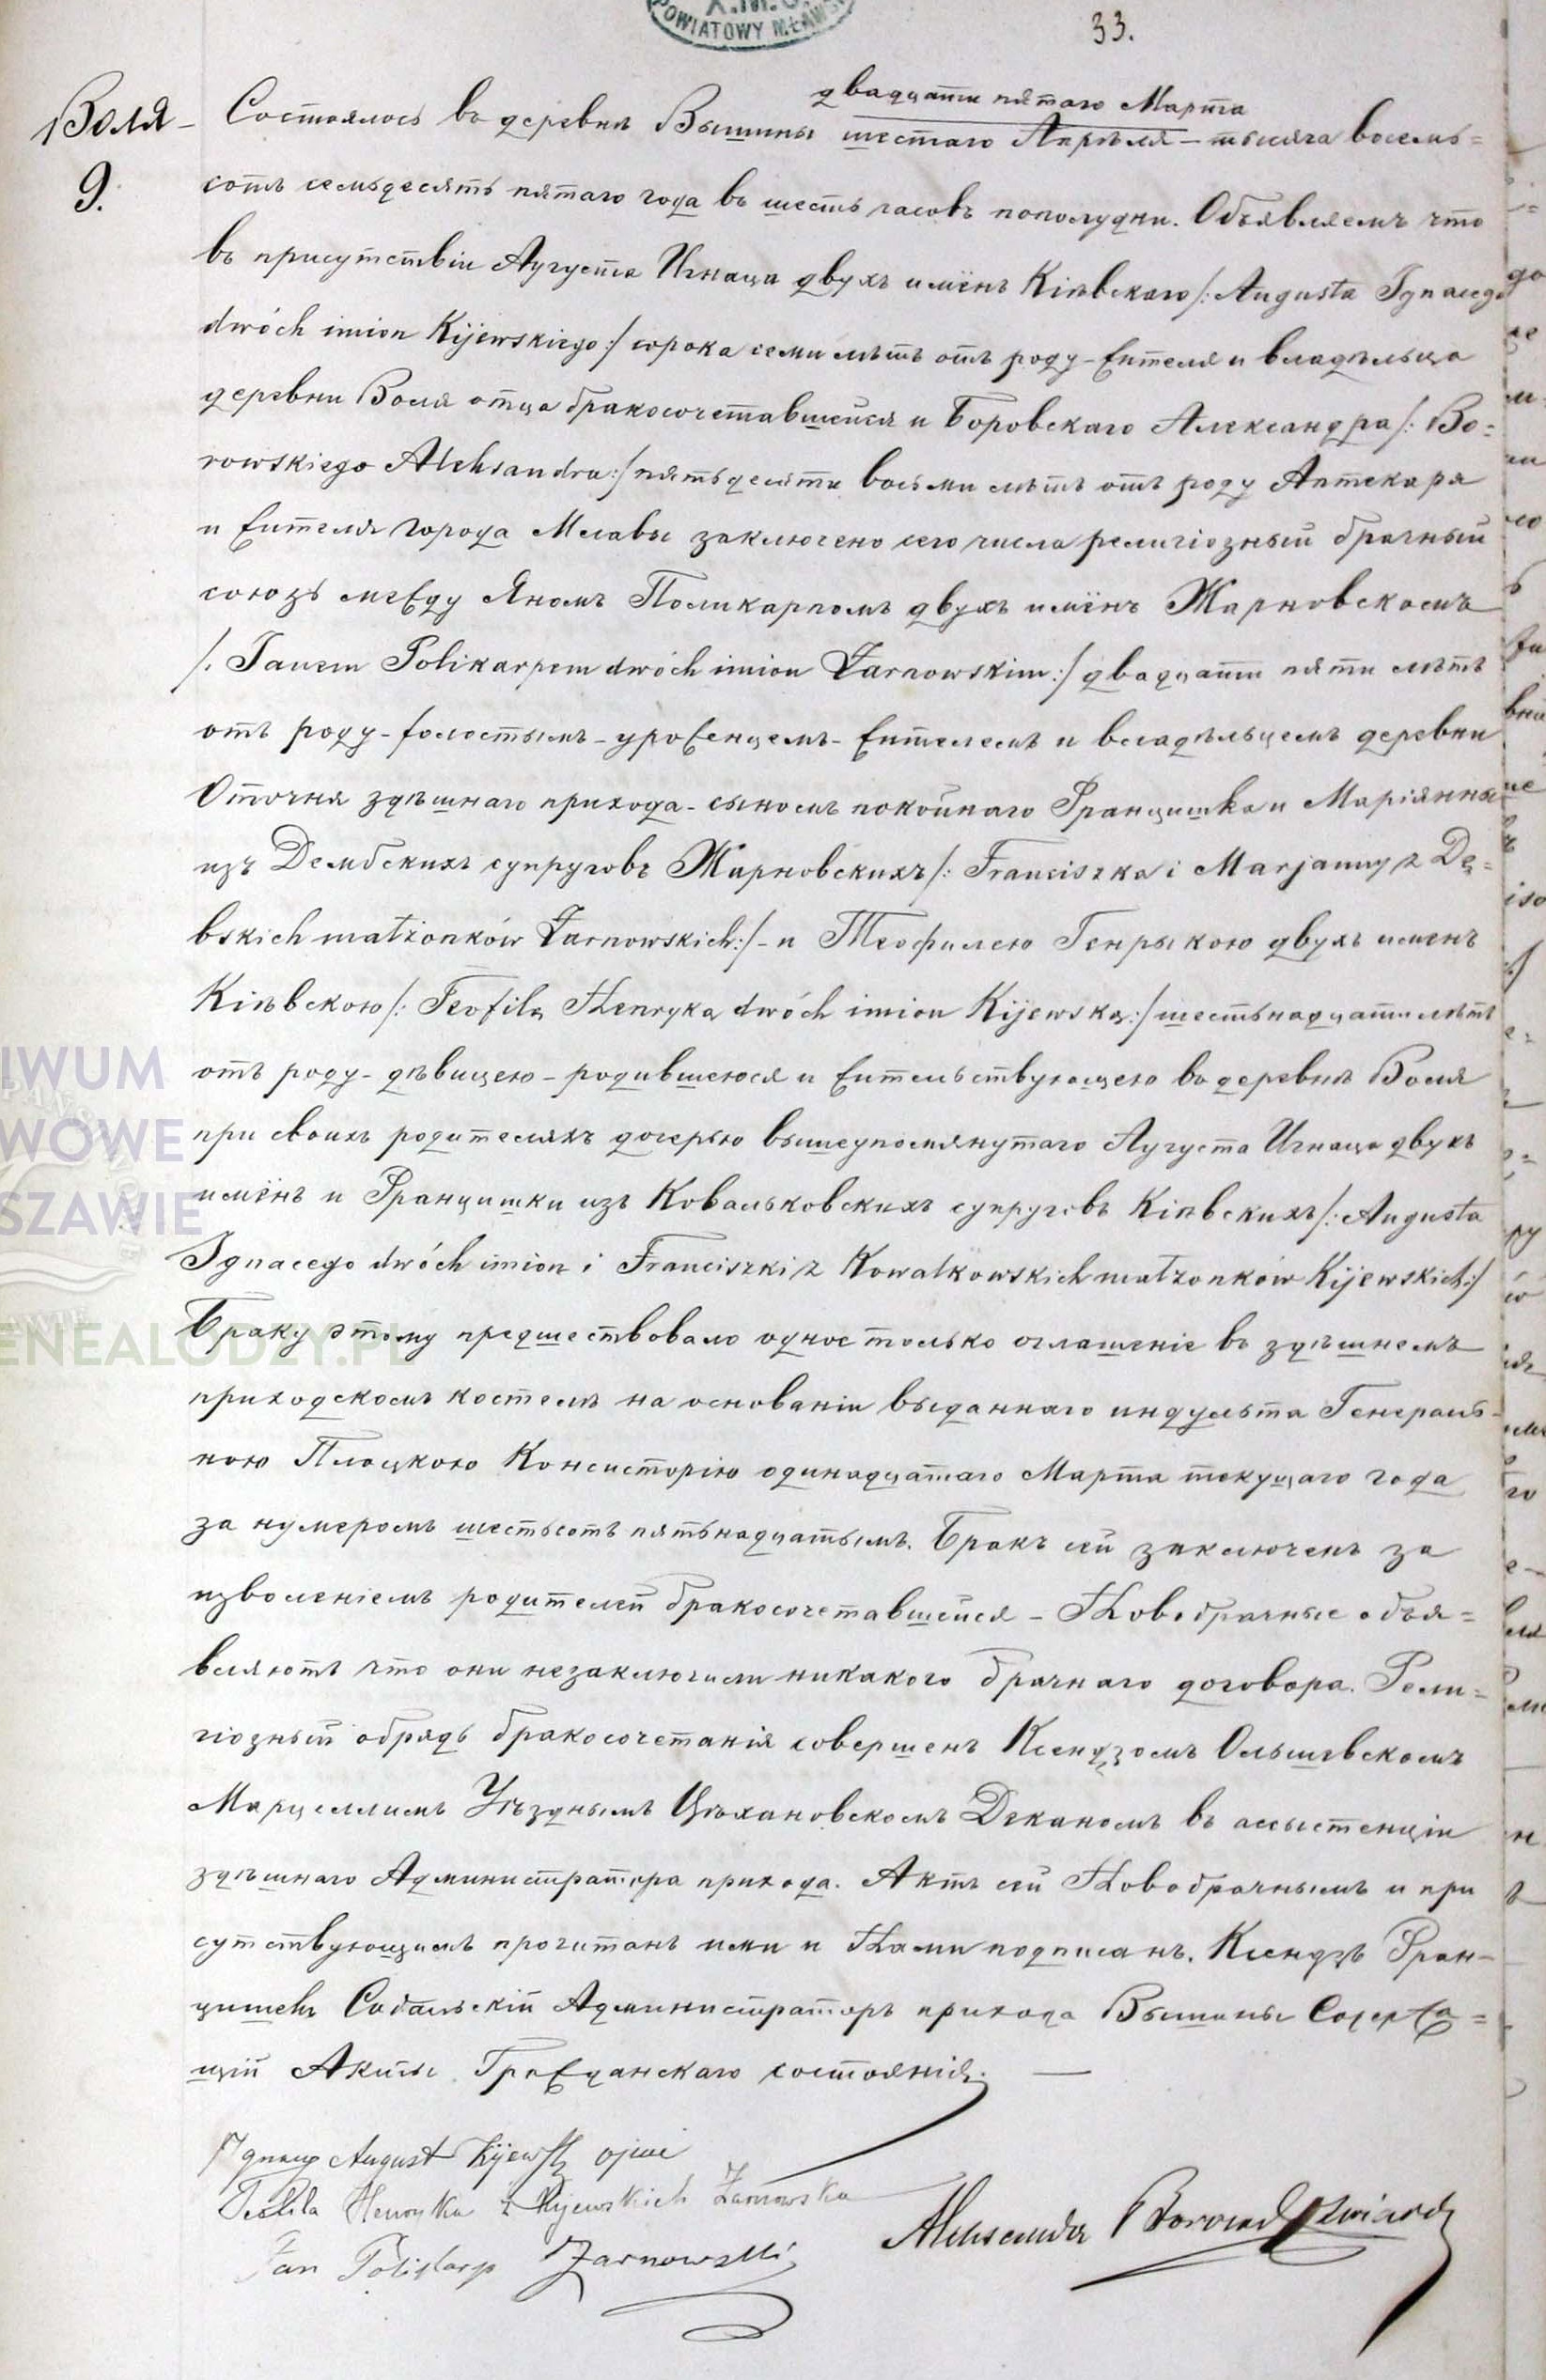 POWIATOWY MŁAWSK
33.
двадцати пятаго Марта
Воля
9.
Состоялось въ деревнѣ Вышины шестаго Апрѣля – тысяча восемь=
сотъ семьдесятъ пятаго года въ шесть часовъ пополудни. Объявляемъ что
въ присутствіи Аугуста Игнаца двухъ имёнъ Кіѣвскаго /: Augusta Ignacego
dwóch imion Kijewskiego :/ сорока семи лѣтъ отъ роду – жителя и владѣльца
деревни Воля отца бракосочетавшейся и Боровскаго Александра /: Bo=
rowskiego Aleksandra :/ пятьдесяти восьми лѣтъ отъ роду Аптекаря
и жителя города Млавы заключено сего числа религіозный брачный
союзъ между Яномъ Поликарпомъ двухъ имёнъ Жарновскомъ
/: Janem Polikarpem dwóch imion Żarnowskim :/ двадцати пяти лѣтъ
отъ роду – холостымъ – уроженцемъ – жителемъ и владѣльцемъ деревни
Оточня здѣшнаго прихода – сыномъ покойнаго Францишка и Маріянны
изъ Дембскихъ супруговъ Жарновскихъ /: Franciszka i Marjanny z Dę=
bskich małżonków Żarnowskich :/ – и Теофилею Генрыкою двухъ имёнъ
Кіѣвскою /: Teofilą Henryką dwóch imion Kijewską :/ шестьнадцати лѣтъ
отъ роду – дѣвицею – родившеюся и жительствующею въ деревнѣ Воля
при своихъ родителяхъ дочерью вышеупомянутаго Аугуста Игнаца двухъ
имёнъ и Францишки изъ Ковальковскихъ супруговъ Кіѣвскихъ /: Augusta
Ignacego dwóch imion i Franciszki z Kowalkowskich małżonków Kijewskich :/
Браку этому предшествовало одное только оглашеніе въ здѣшнемъ
приходскомъ костелѣ на основаніи выданнаго индульта Генераль-
ною Плоцкою Консисторію одинадцатаго Марта текущаго года
за нумеромъ шестьсотъ пятьнадцатымъ. Бракъ сей заключенъ за
изволеніемъ родителей бракосочетавшейся – Новобрачные объя=
вляютъ что они незаключили никакого брачнаго договора. Рели=
гіозный обрядъ бракосочетанія совершенъ Ксендзомъ Ольшевскомъ
Марцеллимъ Уѣзднымъ Цѣхановскомъ Деканомъ въ ассыстенціи
здѣшнаго Администратора прихода. Актъ сей Новобрачнымъ и при
сутствующимъ прочитанъ ими и Нами подписанъ. Ксендзъ Фран-
цишекъ Собальскій Администраторъ прихода Вышины Содержа=
щій Акты Гражданскаго состоянія. —
Ignacy August Kijewski ojciec
Teofila Henryka z Kijewskich Żarnowska
Jan Polikarp Żarnowski
Aleksander Borowski
IWUM
WOWE
SZAWIE
ENEALODZY.PL